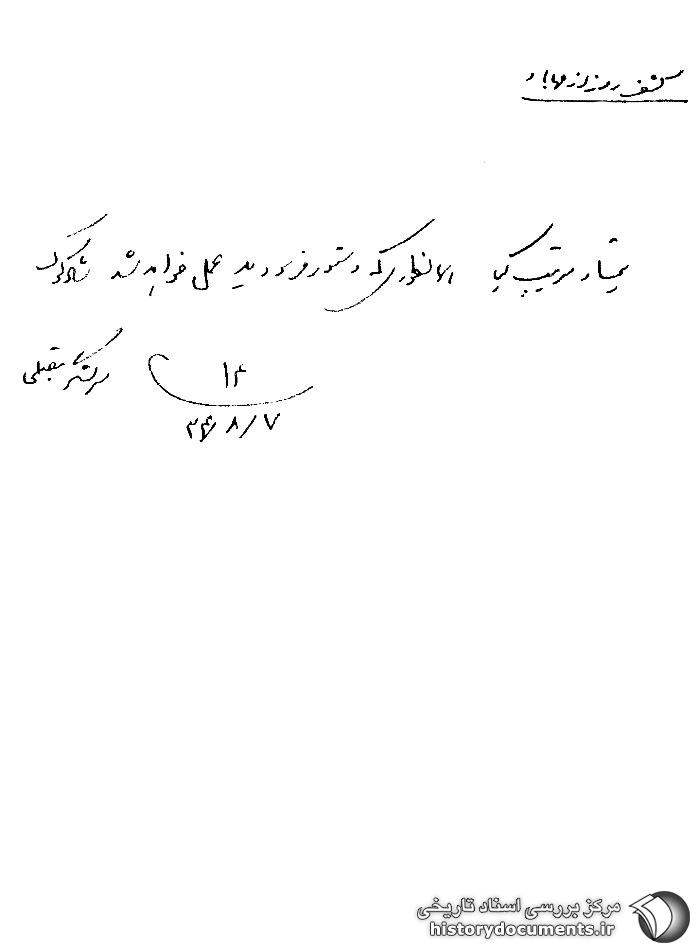 کشف روز از مهاباد
تیمسار سرتیپ کیا همانطوری که دستور فرمودید عمل خواهد شد
سرلشگر مقبلی
۱۴
۲۴/۸/۷
مرکز بررسی اسناد تاریخی
historydocuments.ir